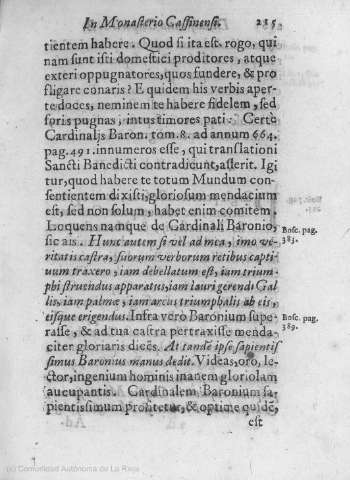 In Monasterio Cassinense. 235
tientem habere. Quod si ita est. rogo, qui
nam sunt isti domestici proditores, atque
exteri oppugnatores, quos fundere, & pro
fligare conaris? E quidem his verbis aper-
te doces, neminem te habere fidelem, sed
foris pugnas, intus timores pati. Certe
Cardinalis Baron. tom. 8. ad annum 664.
pag. 491. innumeros esse, qui translationi
Sancti Banedicti contradicunt, asserit. Igi
tur, quod habere te totum Mundum con-
sentientem dixisti, gloriosum mendacium
est, sed non solum, habet enim comitem.
Loquens namque de Cardinali Baronio,
sic ais. Hunc autem si vel ad mea, imo ve-
ritatis castra, suorum verborum retibus capti
uum traxero, iam debellatum est, iam trium-
phi struendus apparatus, iam lauri gerendi Gal
lis, iam palmæ, iam arcus triumphalis ab eis,
eisque erigendus. Infra vero Baronium supe-
rasse, & ad tua castra pertraxisse menda-
citer gloriaris dicēs. At tandē ipse sapientis
simus Baronius manus dedit. Videas, oro, le-
ctor, ingenium hominis inanem gloriolam
aucupantis. Cardinalem Baronium sa-
pientissimum profitetur, & optime quidē,
est
Bosc. pag.
383.
Bosc. pag.
389.
(c) Comunidad Autónoma de La Rioja